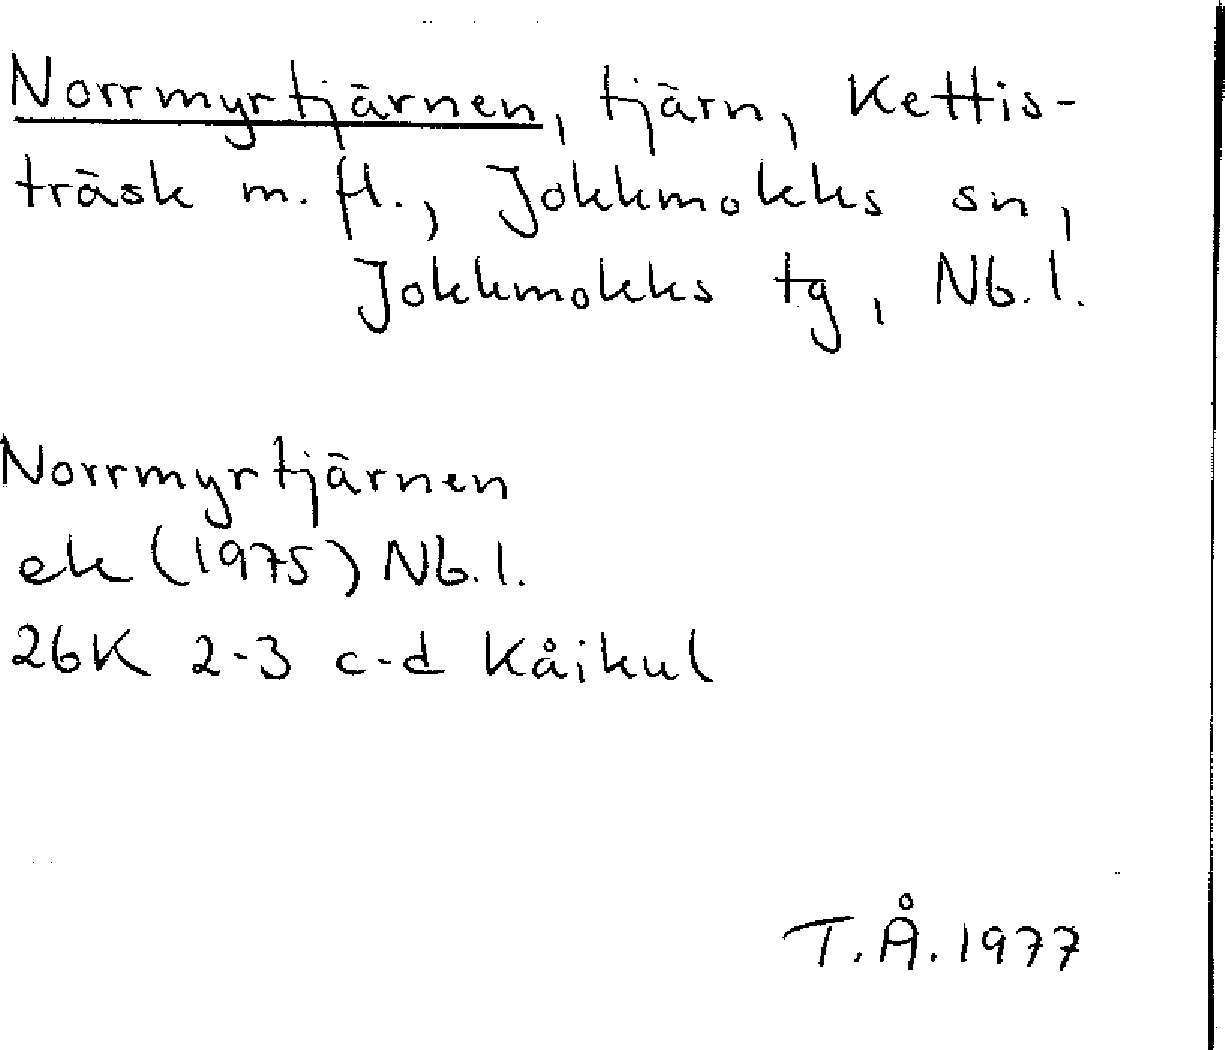 Norrmyrtjärnen, tjärn, Kettis-
träsk m.fl., Jokkmokks sn,
Jokkmokks tg, Nb.l.
Norrmyrtjärnen
ek (1975) Nb.l.
26K 2-3 c-d Kåikul
T.Å.1977